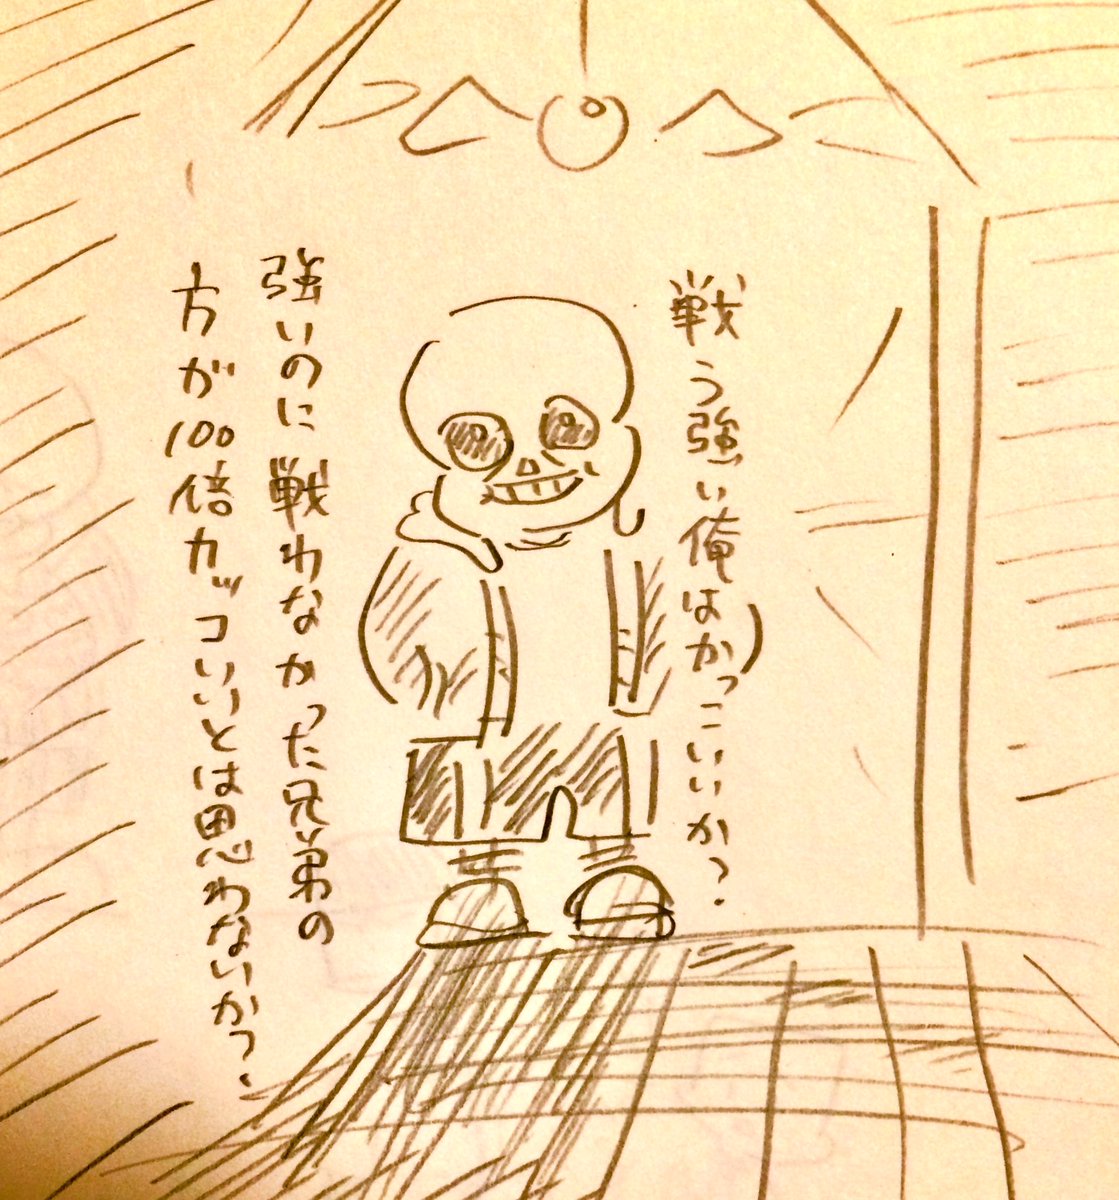 戦う強い俺はかっこいいか?
強いのに戦わなかった兄弟の
方が100倍カッコいいとは思わないか?